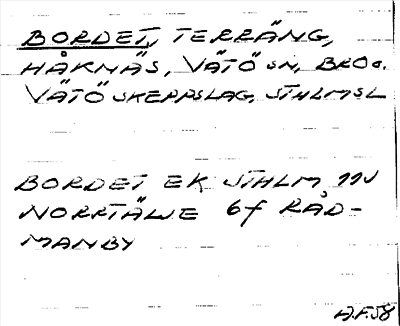 BORDET, TERRÄNG,
HÅKNÄS, VÄTÖ SN, BRO o.
VÄTÖ SKEPPSLAG, STHLMSL
BORDET EK STHLM 11J
NORRTÄLJE 6f RÅD-
MANBY
A.F.58